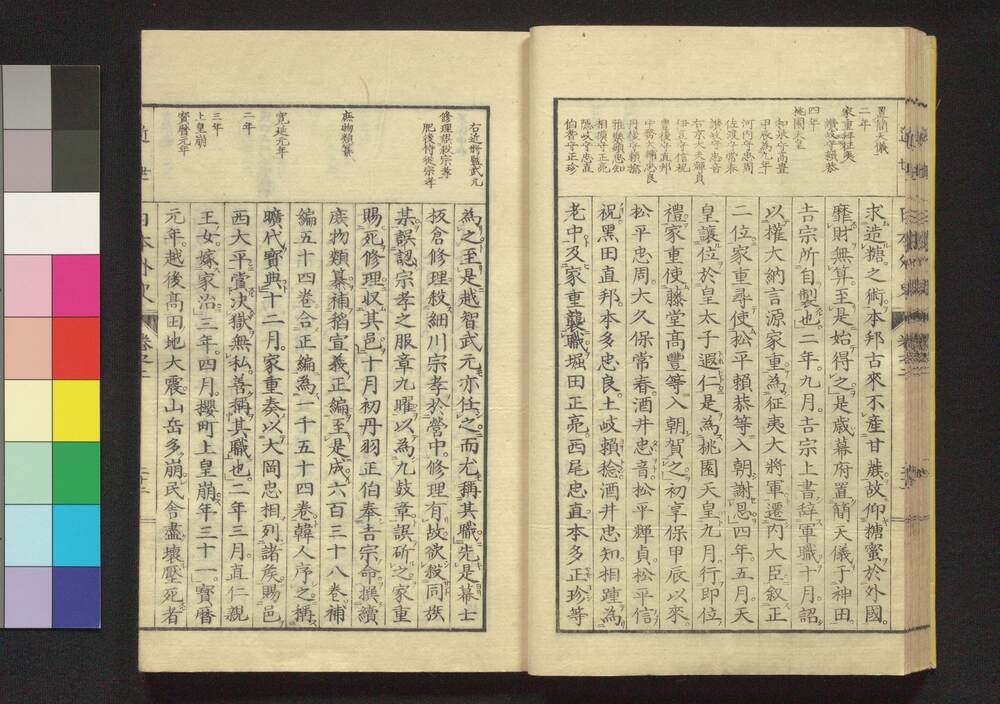 置簡天儀
二年
家重拜征夷
讃岐守頼恭
四年
桃園天皇
和泉守高豊
甲辰為九年
河内守忠周
佐渡守常春
讃岐守忠音
右京大夫輝貞
伊豆守信祝
豊後守直邦
中務大輔忠良
丹後守頼稔
雅樂頭忠知
相摸守正亮
隱岐守忠直
伯耆守正珍
求造糖之術本邦古來不産甘蔗故仰糖蜜於外國
靡財無算至是始得之是歳幕府置簡天儀于神田
吉宗所自製也二年九月吉宗上書辞軍職十月詔
以權大納言源家重為征夷大將軍遷内大臣叙正
二位家重尋使松平頼恭等入朝謝恩四年五月天
皇讓位於皇太子遐仁是為桃園天皇九月行即位
禮家重使藤堂高豊等入朝賀之初享保甲辰以來
松平忠周大久保常春酒井忠音松平輝貞松平信
祝黒田直邦本多忠良土岐頼稔酒井忠知相踵為
老中及家重襲職堀田正亮西尾忠直本多正珍等
右近將監武元
修理板倉宗孝
肥後侍從宗孝
庶物類纂
寛延元年
二年
三年
上皇崩
寳暦元年
為之至是越智武元亦仕之而尤稱其職先是幕士
板倉修理殺細川宗孝於營中修理有故欲殺同族
某誤認宗孝之服章九曜以為九鼓章誤斫之家重
賜死修理収其邑十月初丹羽正伯奉吉宗命撰續
庶物類纂補稻宣義正編至是成六百三十八卷補
編五十四卷合正編為一千五十四卷韓人序之稱
曠代寳典十二月家重奏以大岡忠相列諸矦賜邑
西大平當决獄無私善稱其職也二年三月直仁親
王女嫁家治三年四月櫻町上皇崩年三十一寳暦
元年越後髙田地大震山岳多崩民舎盡壞壓死者